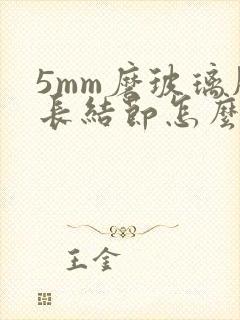 5mm磨玻璃
長結節怎麼
王金